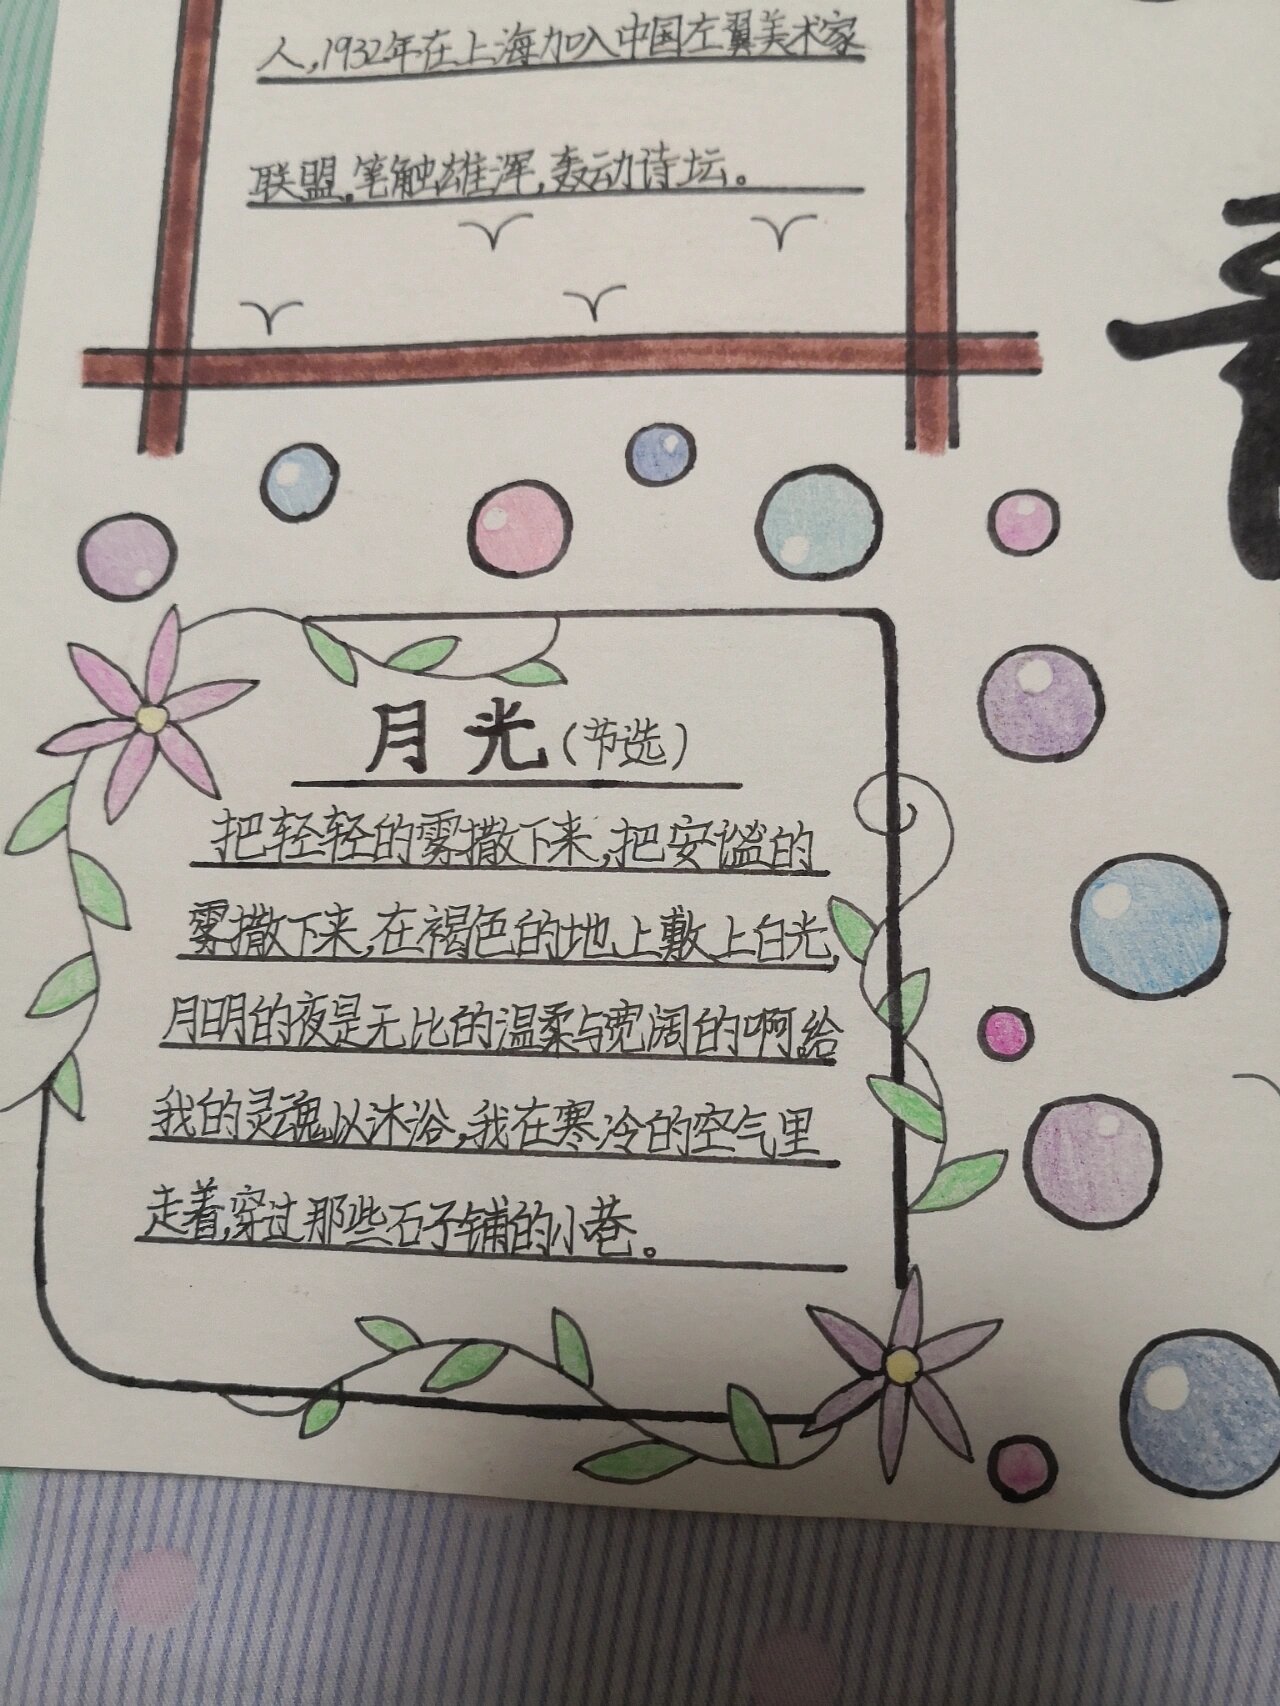 人,1932年在上海加入中国左翼美术家
联盟。笔触雄浑,轰动诗坛。
月光(节选)
把轻轻的雾撒下来,把安谧的
雾撒下来,在褐色的地上敷上白光,
月明的夜是无比的温柔与宽阔的啊,给
我的灵魂以沐浴,我在寒冷的空气里
走着,穿过那些石子铺的小巷。